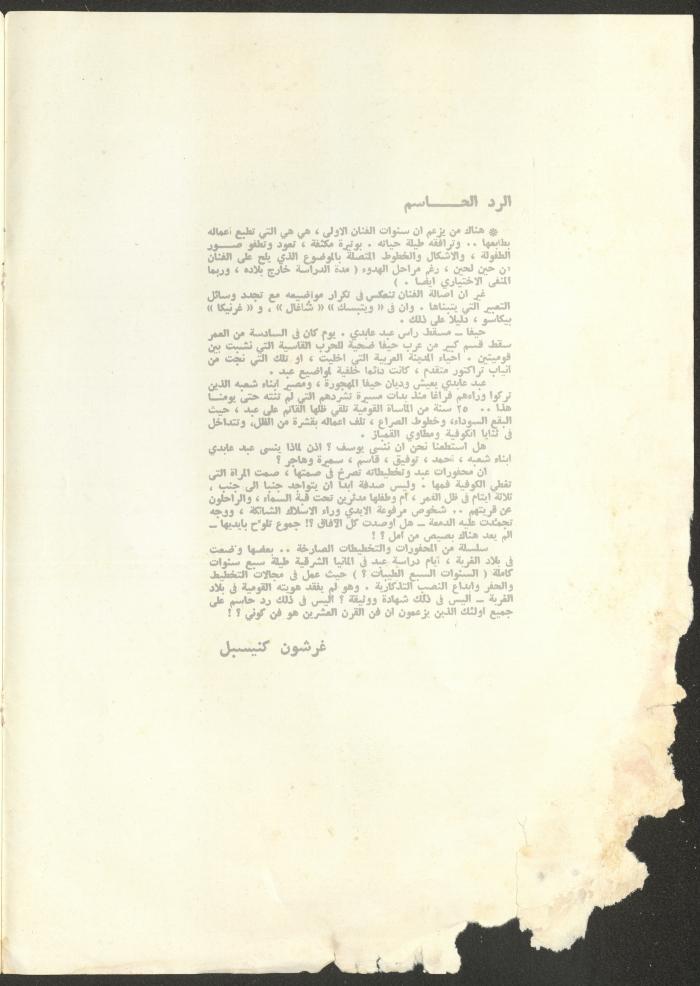 الرد الحـــــاسم
* هناك من يزعم ان سنوات الفنان الاولى ، هي هي التي تطبع اعماله
بطابعها .. وترافقه طيلة حياته . بوتيرة مكثفة ، تعود وتطفو صـــور
الطفولة ، والاشكال والخطوط المتصلة بالموضوع الذي يلح على الفنان
من حين لحين ، رغم مراحل الهدوء ( مدة الدراسة خارج بلاده ، وربما
المنفى الاختياري ايضا . )
غير ان اصالة الفنان تنعكس في تكرار مواضيعه مع تجدد وسائل
التعبير التي يتبناها . وان في « ويتبسك » « شاغال » ، و « غرنيكا »
بيكاسو ، دليلا على ذلك .
حيفا ــ مسقط راس عبد عابدي . يوم كان في السادسة من العمر
سقط قسم كبير من عرب حيفا ضحية للحرب القاسية التي نشبت بين
قوميتين . احياء المدينة العربية التي اخليت ، او تلك التي نجت من
انياب تراكتور متقدم ، كانت دائما خلفية لمواضيع عبد .
عبد عابدي يعيش وديان حيفا المهجورة ، ومصير ابناء شعبه الذين
تركوا وراءهم فراغا منذ بدات مسيرة تشردهم التي لم تنته حتى يومنــا
هذا .. ٢٥ سنة من المأساة القومية تلقي ظلها القاتم على عبد ، حيث
البقع السوداء، وخطوط الصراع ، تلف اعماله بقشرة من الظل، وتتداخل
في ثنايا الكوفية ومطاوي القمباز .
هل استطعنا نحن ان ننسى يوسف ؟ اذن لماذا ينسى عبد عابدي
ابناء شعبه ، احمد ، توفيق ، قاسم ، سميرة وهاجر ؟
ان محفورات عبد وتخطيطاته تصرخ في صمتها ، صمت المرأة التي
تغطي الكوفية فمها . وليس صدفة ابدا ان يتواجد جنبا الى جنب ،
ثلاثة ايتام في ظل القمر ، ام وطفلها مدثرين تحت قبة السماء ، والراحلون
عن قريتهم .. شخوص مرفوعة الايدي وراء الاسلاك الشائكة ، ووجه
تجمدت عليه الدمعة ــ هل اوصدت كل الآفاق ؟! جموع تلوّح بايديها ــ
الم يعد هناك بصيص من امل ؟ !
سلسلة من المحفورات والتخطيطات الصارخة .. بعضها وضعت
في بلاد الغربة ، ايام دراسة عبد في المانيا الشرقية طيلة سبع سنوات
كاملة ( السنوات السبع الطيبات ؟ ) حيث عمل في مجالات التخطيط
والحفر وابداع النصب التذكارية . وهو لم يفقد هويته القومية في بلاد
الغربة ــ اليس في ذلك شهادة ووثيقة ؟ اليس في ذلك رد حاسم على
جميع اولئك الذين يزعمون ان فن القرن العشرين هو فن كوني ؟ !
غرشون كنيسبل